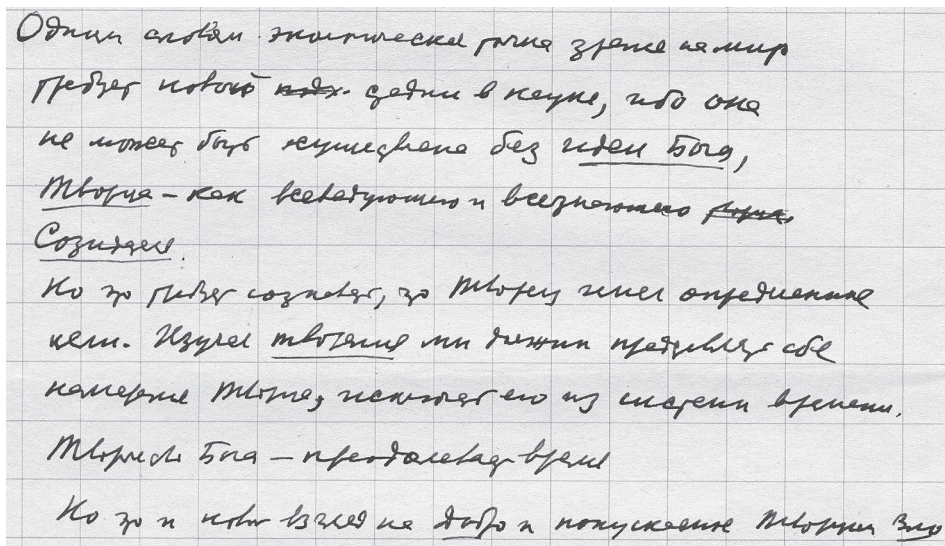 Одним словом экологическая точка зрения на мир
требует новый подх. сделки в науке, ибо она
не может быть осуществлена без идеи Бога,
Творца – как всеведующего и всезнающего
Создателя.
Но это требует сознавать, что Творец имел определенные
цели. Изучая творения мы должны представлять себе
намерения Творца, исключает его из системы времени.
Творчество Бога – преодолевать время
Но это и новый взгляд на добро и попускание Творцом Зло